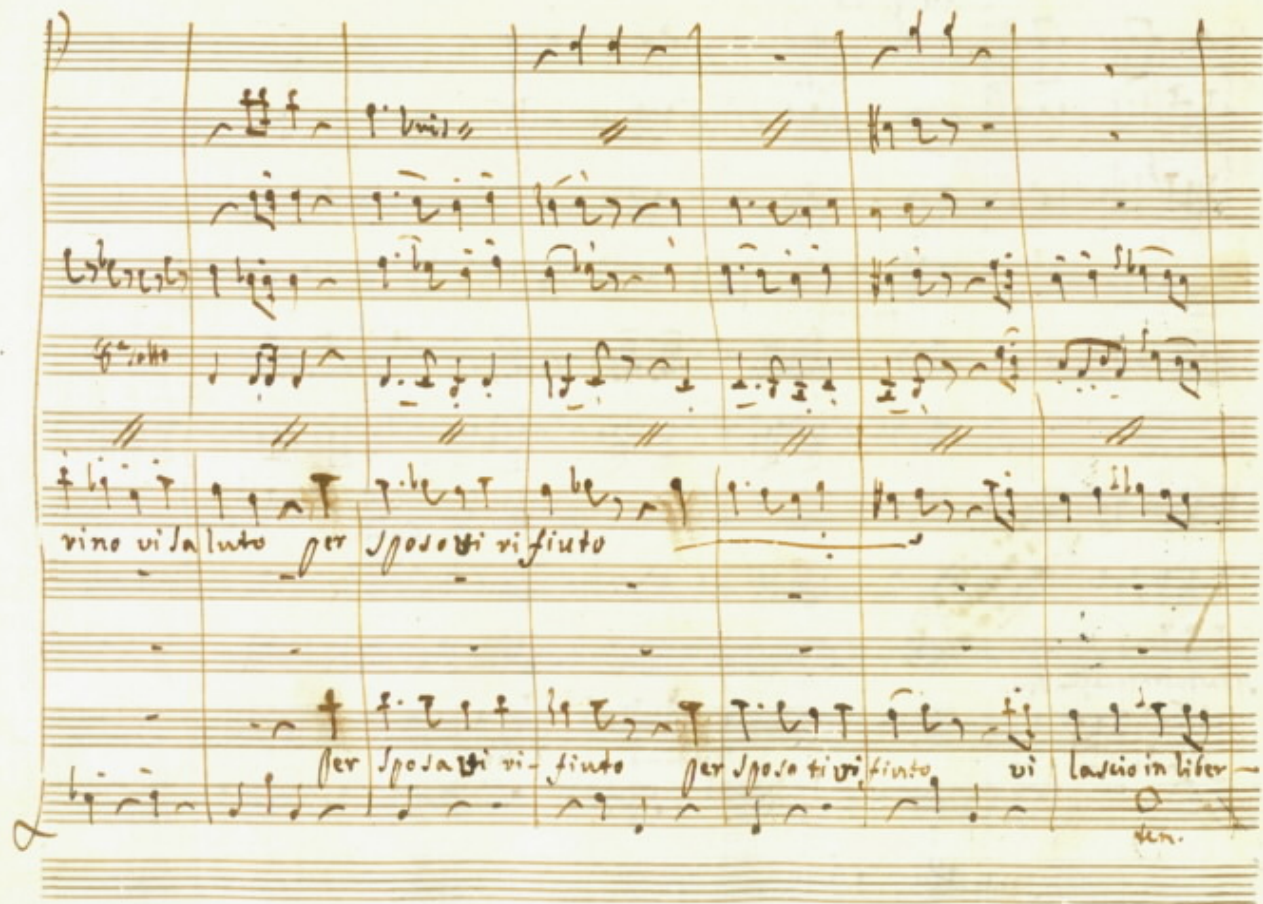 Unis
8va sotto
rino vi saluto per sposo vi rifiuto
per sposa vi ri- fiuto per sposa ti vi fiuto vi lascio in liber-
ten.